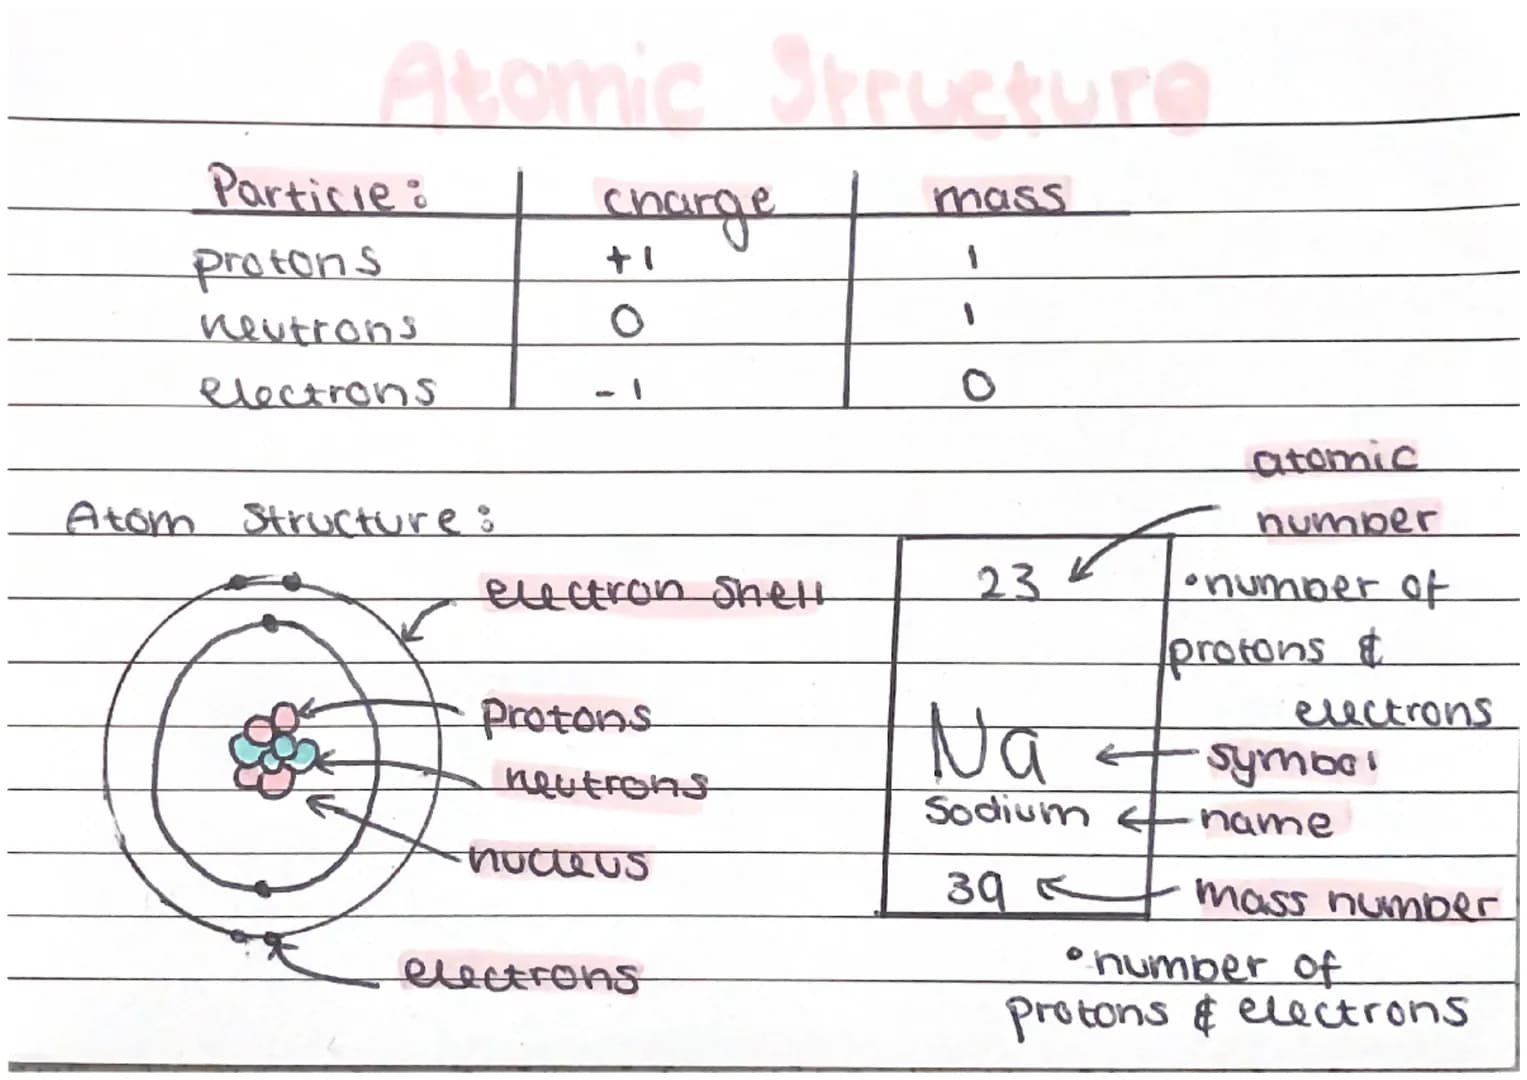 Atomic Structure
Particle: charge mass
protons +1 1
neutrons 0 1
electrons -1 0
atomic
number
Atom Structure:
23
•number of
protons &
electrons
electron shell
protons
neutrons
nucleus
electrons
Na
symbol
Sodium
name
39
mass number
•number of
protons & electrons